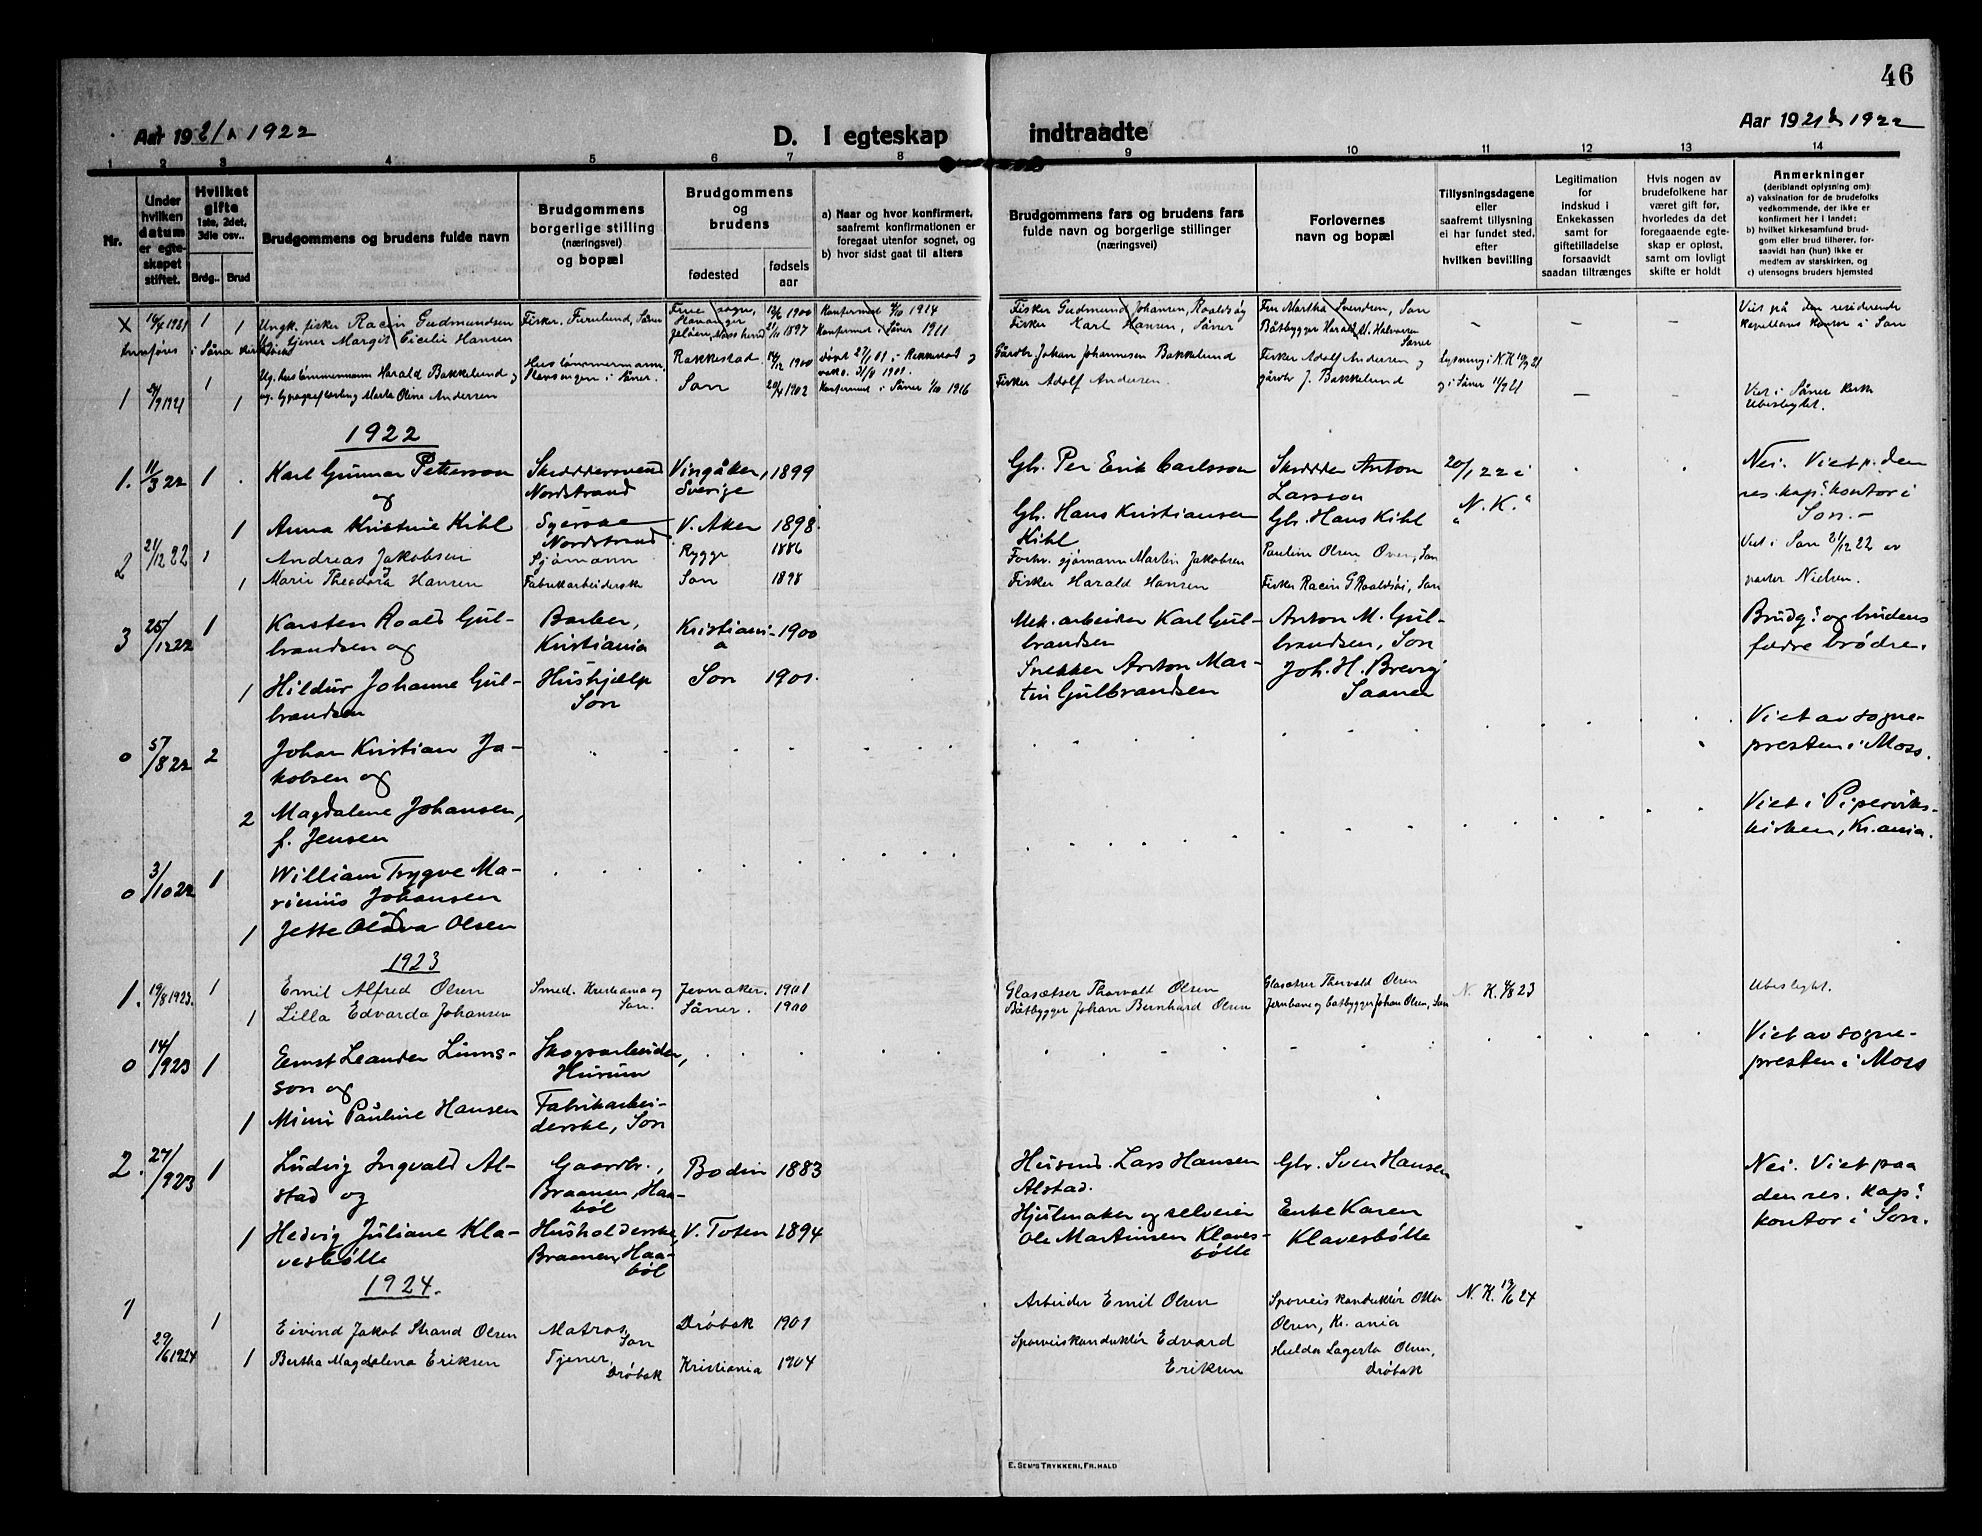 46
Aar 1921 & 1922
D. I egteskap
indtraadte
Aar 1921 & 1922
1 2 3 4 5 6 7 8 9 10 11 12 13 14
Nr.
Under
hvilken
datum
er egte-
skapet
stiftet.
Hvilket
gifte
1ste, 2det,
3die osv..
Brdg..
Brud
Brudgommens og brudens fulde navn
Brudgommens
borgerlige stilling
(næringsvei)
og bopæl
Brudgommens
og
brudens
fødested
fødsels
aar
a) Naar og hvor konfirmert,
saafremt konfirmationen er
foregaat utenfor sognet, og
b) hvor sidst gaat til alters
Brudgommens fars og brudens fars
fulde navn og borgerlige stillinger
(næringsvei)
Forlovernes
navn og bopæl
Tillysningsdagene
eller
saafremt tillysning
ei har fundet sted,
efter
hvilken bevilling
Legitimation
for
indskud i
Enkekassen
samt for
giftetilladelse
forsaavidt
saadan tiltrænges
Hvis nogen av
brudefolkene har
været gift før,
hvorledes da det
foregaaende egte-
skap er opløst,
samt om lovligt
skifte er holdt
Anmerkninger
(deriblandt oplysning om)
a) vaksination for de brudefolks
vedkommende, der ikke er
konfirmert her i landet;
b) hvilket kirkesamfund brud-
gom eller brud tilhører, for-
saavidt han (hun) ikke er
medlem av statskirken, og
c) utensogns bruders hjemsted
x 16/4 1921 1 Ungk. fisker Racin Gudmundsen Fisker, Furulund, Såner
1 Margit Cecilie Hansen
12/6 1900 Konfirmert 4/10 1914
1897 Konfirmert i Såner 1911
Fisker Gudmund Johansen, Roaldsøy
Fisker Karl Hansen, Såner
Fru Martha Svendsen, Son
Båtbygger Harald M. Halvorsen
Såner
Viet på den residerende
kapellans kontor i Son
1 29/9 1921 1 Ug. hustømmermann Harald Bakkelund og
1 Marta Oline Andersen
Hustømmermann,
Stavengen i Såner.
Rakkestad. 14/12 1900
Son 20/4 1902 Konfirmert i Såner 1/10 1916
Gårdbr. Johan Johannesen Bakkelund
Fisker Adolf Andersen.
Fisker Adolf Andersen og
gårdbr J. Bakkelund
Lysning i N.K. 10/9 21
og i Såner 11/9 21
Viet i Såner kirke
Ubeslegtet.
1922
1. 11/3 22 1 Karl Gunnar Petterson
og
Skræddersvend
Nordstrand
Vingåker,
Sverige
1899
Gbr. Per Erik Carlsson
Skrædder Anton
Larsson
20/1 22 i
N. K.
Nei. Viet p. den
res. kap's kontor i
Son.-
1 Anna Kristine Kihl
Syerske
Nordstrand
V. Aker 1898
Gbr. Hans Kristiansen
Kihl
Gbr. Hans Kihl
2 21/12 22 1 Andreas Jakobsen
og
Sjømann Rygge 1886
Forhv. sjømann Martin Jakobsen
Pauline Olsen Øver, Son
Viet i Son 21/12 22 av
pastor Nielsen.
1 Marie Theodora Hansen
Fabrikkarbeiderske Son 1898
Fisker Harald Hansen
Fisker Racin G Roaldsøi, Son
3 25/12 22 1 Karsten Roald Gul-
brandsen og
Barber,
Kristiania
Kristiani-
a
1900
Mek. arbeider Karl Gul-
brandsen
Anton M. Gul-
brandsen, Son
Brudg's og brudens
fædre brødre.
1 Hildur Johanne Gul-
brandsen
Hushjælp
Son
Son 1901.
Snekker Anton Mar-
tin Gulbrandsen
Joh. H. Brevig
Saaner
0 5/8 22 2 Johan Kristian Ja-
kobsen og
Viet av sogne-
presten i Moss.
2 Magdalene Johansen,
f. Jensen
Viet i Piperviks-
kirken, Kr.ania.
0 3/10 22 1 William Trygve Ma-
rinius Johansen
og
1 Jette Olava Olsen
1923
1. 19/8 1923. 1 Emil Alfred Olsen
1 Lilla Edvarda Johansen
Smed. Kristiania og
Son.
Jevnaker. 1901
Såner. 1900
Glasætser Thorvald Olsen
Båtbygger Johan Bernhard Olsen
Glasætser Thorvald Olsen
båtbygger Johan Olsen, Son
N. K. 4/8 23
Ubeslegtet.
0 14/9 23 1 Ernst Leander Linus-
son og
Skogsarbeider,
Hurum
Viet av sogne-
presten i Moss
1 Mimi Pauline Hansen
Fabrikarbei-
derske, Son
2. 27/9 23 1 Ludvig Ingvald Al-
stad og
Gaardbr.,
Braanen, Haa-
bøl
Bodin 1883
Husmd. Lars Hansen
Alstad.
Gbr. Sven Hansen
Nei. Viet paa
den res. kap's
kontor i Son.
1 Hedvig Juliane Kla-
vesbølle
Husholderske
Braanen, Haa-
bøl
V. Toten 1894
Hjulmaker og selveier
Ole Martinsen Klaves-
bølle
Enke Karen
Klavesbølle
1924.
1 29/6 1924 1 Eivind Jakob Strand Olsen
1 Bertha Magdalena Eriksen
Matros,
Son
Tjener,
Drøbak
Drøbak 1901
Kristiania 1904
Arbeider Emil Olsen
Sporveiskonduktør Edvard
Eriksen
Sporveiskonduktør Otto
Olsen, Kr.ania
Hulda Lagerta Olsen,
Drøbak
N. K. 19/6 24
E. SEM'S TRYKKERI, FR.HALD